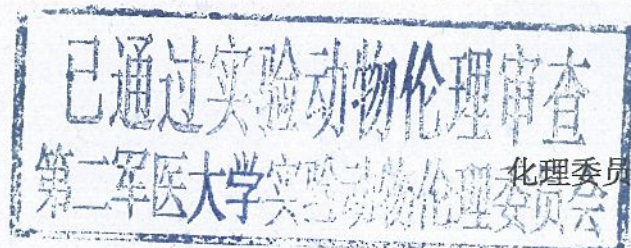 已通过实验动物伦理审查
第二军医大学实验动物伦理委员会
化理委员